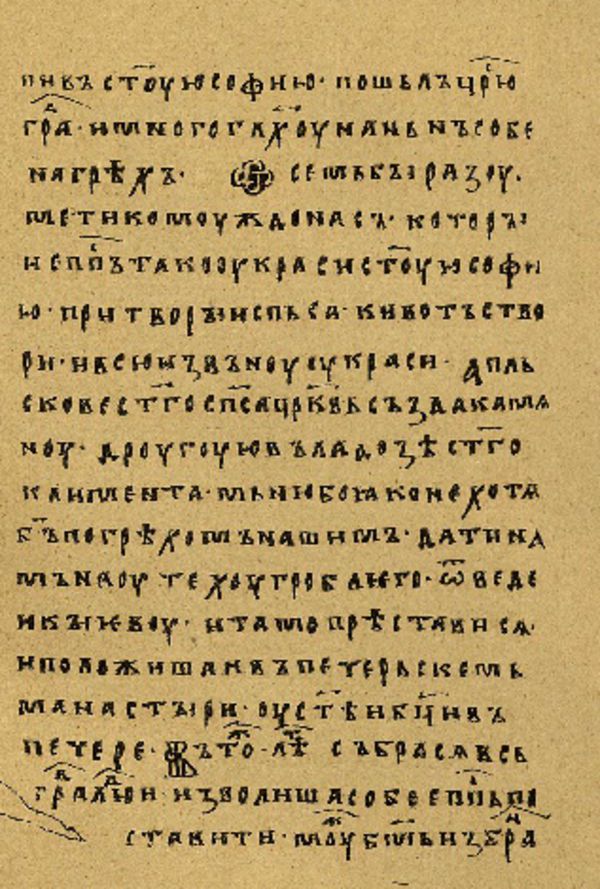 пивъ ст҃оую софию · пошьлъ цр҃ю
гра · и много гл҃хоу на нь нъ собе
на грѣхъ · семь бы разоу
мети комоуждо насъ · которꙑ
и еп҃пъ тако оукраси ст҃оую софи
ю · притворꙑ испьса · кивотъ ство
ри · и всю изъвъноу оукраси · а пль
скове ст҃го сп҃са цр҃квь създа камꙗ
ноу · дроугоую въ ладозѣ ст҃го
климента · мьню бо ꙗко не хотѧ
б҃ъ по грѣхомъ нашимъ · дати на
мъ на оутехоу гроба ѥго · ѿведе
и кꙑѥвоу · и тамо прѣстависѧ ·
и положиша и въ печерьскемь
манастꙑри · оу ст҃ѣи бц҃и въ
печере · въ то · лѣ събрасѧ всь
гра людии изволиша собе еп҃пь по
ставити · моу б҃мь избра